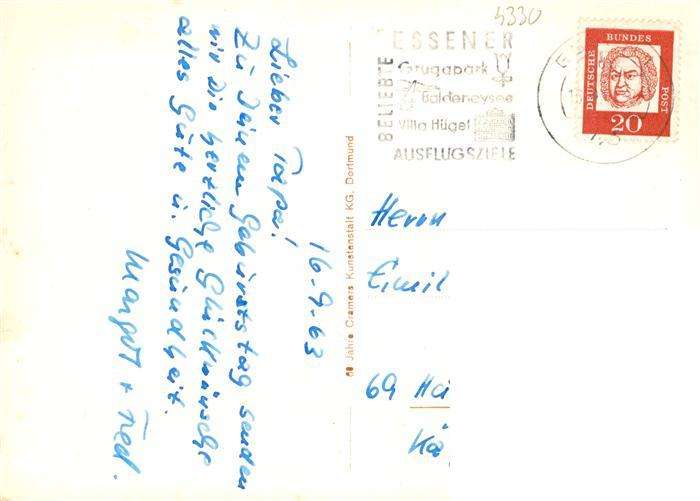 16-9-63
Lieber Papa!
Zu Deinem Geburtstag senden
wir Dir herzliche Glückwünsche
alles Gute u. Gesundheit.
Margot + Fred.
68 Jahre Cramers Kunstanstalt KG, Dortmund
4330
BELIEBTE
ESSENER
Grugapark
Baldeneysee
Villa Hügel
AUSFLUGSZIELE
DEUTSCHE BUNDES POST
20
Herrn
Emil
69 Hei
Kä